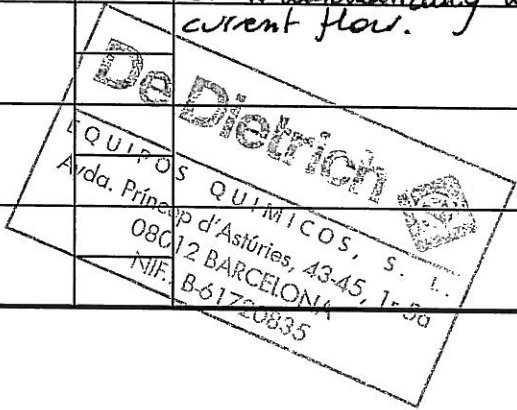 current flow.
De Dietrich
EQUIPOS QUIMICOS, S. L.
Avda. Príncep d'Astúries, 43-45, 1r 3a
08012 BARCELONA
NIF.: B-61720835